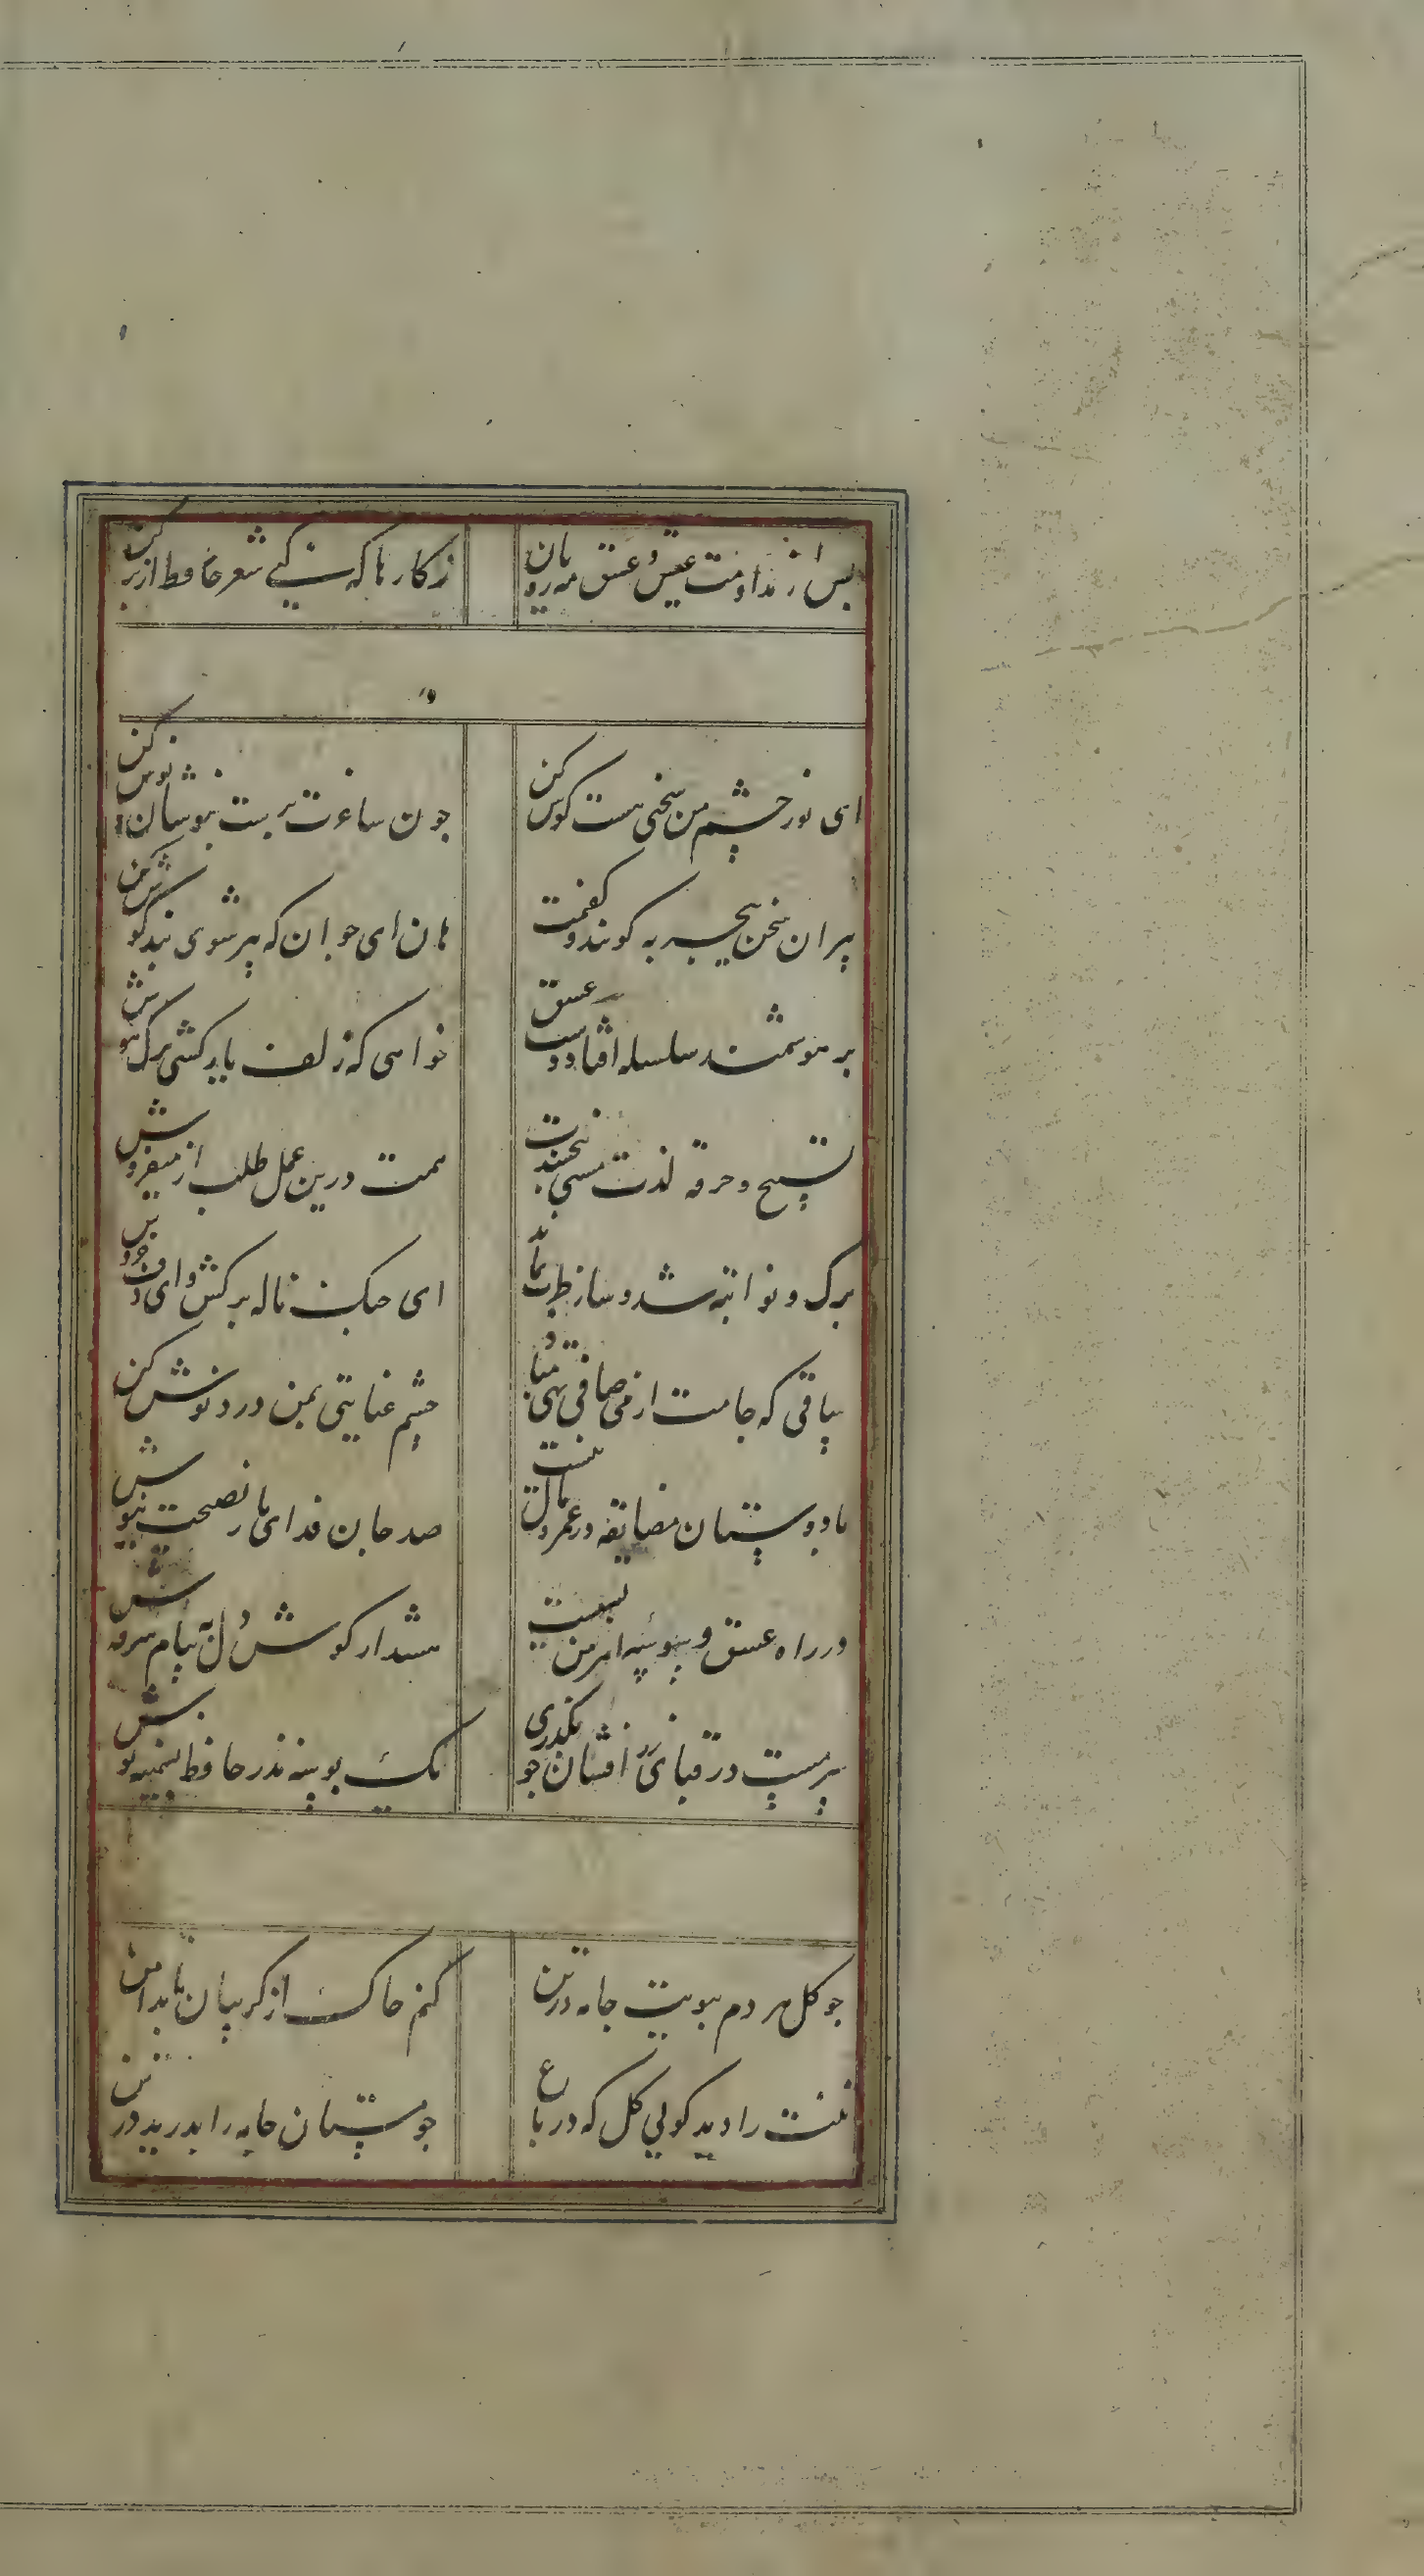 پس از مداومت عیش و عشق مه رویان
ز کارها که کنی شعر حافظ از بر کن
ای نور چشم من سخنی هست گوش کن
چون ساغرت پرست بنوشان و نوش کن
پیران سخن بتجربه گویند و گفتمت
هان ای جوان که پیر شوی پند گوش کن
بر هوشمند سلسله ننهاد دست عشق
خواهی که زلف یار کشی ترک هوش
تسبیح و خرقه لذت مستی نبخشدت
همت درین عمل طلب از میفروش
برک و نوا تبه شد و ساز طرب نماند
ای چنک ناله برکش و ای دف خروش
ساقی که جامت از می صافی تهی مباد
چشم عنایتی بمن دردنوش کن
با دوستان مضایقه در عمر و مال نیست
صد جان فدای یار نصیحت نیوش
در راه عشق وسوسه اهرمن بسیست
هشدار و گوش دل به پیام سروش
سرمست در قبای زرافشان چو بگذری
یک بوسه نذر حافظ پشمینه پوش
چو کل هر دم ببویت جامه در تن
کنم چاک از کریبان تا بدامن
تنت را دید کویی کل که در باغ
چو مستان جامه را بدرید در تن